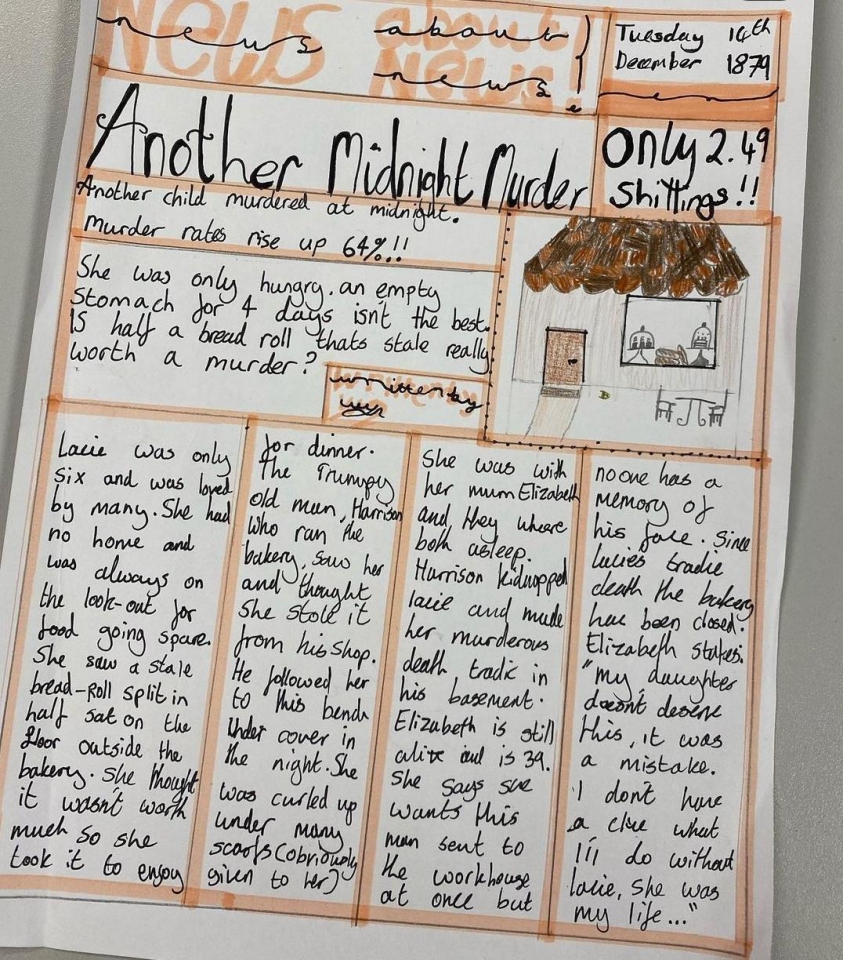 news about
news!
Tuesday 14th
December 1879
Another Midnight Murder
Only 2.49
Shillings!!
Another child murdered at midnight.
Murder rates rise up 64%!!
She was only hungry. an empty
Stomach for 4 days isn't the best.
Is half a bread roll thats stale really
worth a murder?
written by
Lacie was only
six and was loved
by many. She had
no home and
was always on
the look-out for
food going spare.
She saw a stale
bread-roll split in
half sat on the
floor outside the
bakery. She thought
it wasn't worth
much so she
took it to enjoy
for dinner.
The Trumpy
old man, Harrison
who ran the
bakery, saw her
and thought
she stole it
from his shop.
He followed her
to this bench
under cover in
the night. She
was curled up
under many
scarfs (obviously
given to her)
She was with
her mum Elizabeth
and they where
both asleep.
Harrison kidnapped
lacie and made
her murderous
death tradic in
his basement.
Elizabeth is still
alive and is 39.
She says she
wants this
man sent to
the workhouse
at once but
no one has a
memory of
his face. Since
lacies tradic
death the bakery
has been closed.
Elizabeth states:
"my daughter
doesnt deserve
this, it was
a mistake.
I don't have
a clue what
I'll do without
lacie, she was
my life..."